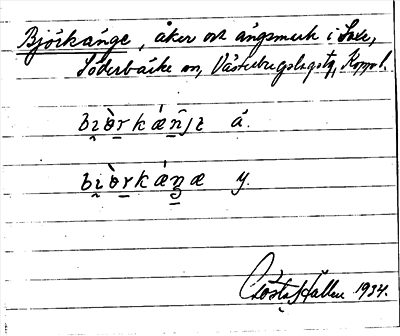 Björkänge, åker och ängsmark i Saxe,
Söderbärke sn, Västerbergslags tg, Kopp. l.
bɪ̯òrkǽn̂jɪ ä.
bɪ̯òrkǽŋæ y.
Gösta Hallen 1934.